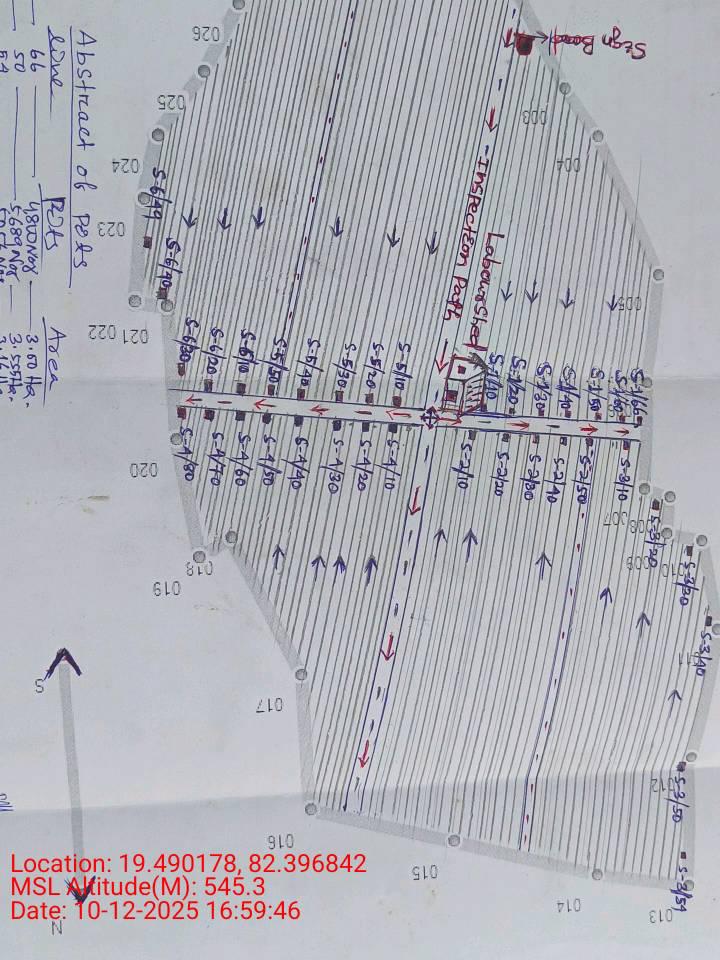 Sign Board
Inspection Path
Labour Shed
Abstract of Pits
Line
Pits
Area
66
4800 Nos
3.00 Ha.
50
5689 Nos
3.55 Ha.
026
025
024
023
022
021
020
019
018
017
016
015
014
013
012
011
010
009
008
007
005
004
003
S-6/49
S-6/40
S-6/30
S-6/20
S-6/10
S-5/50
S-5/40
S-5/30
S-5/20
S-5/10
S-1/10
S-1/20
S-1/30
S-1/40
S-1/50
S-1/60
S-1/66
S-4/80
S-4/70
S-4/60
S-4/50
S-4/40
S-4/30
S-4/20
S-4/10
S-2/10
S-2/20
S-2/30
S-2/40
S-2/50
S-3/10
S-3/20
S-3/30
S-3/40
S-3/50
S-3/54
S
N
Location: 19.490178, 82.396842
MSL Altitude(M): 545.3
Date: 10-12-2025 16:59:46